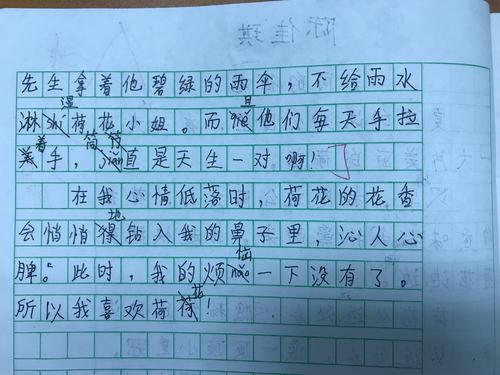 陈佳琪
先生拿着他碧绿的雨伞，不给雨水
淋湿荷花小姐。而且他们每天手拉
着手，简直是天生一对啊！
在我心情低落时，荷花的花香
会悄悄地钻入我的鼻子里，沁人心
脾。此时，我的烦恼一下没有了。
所以我喜欢荷花！